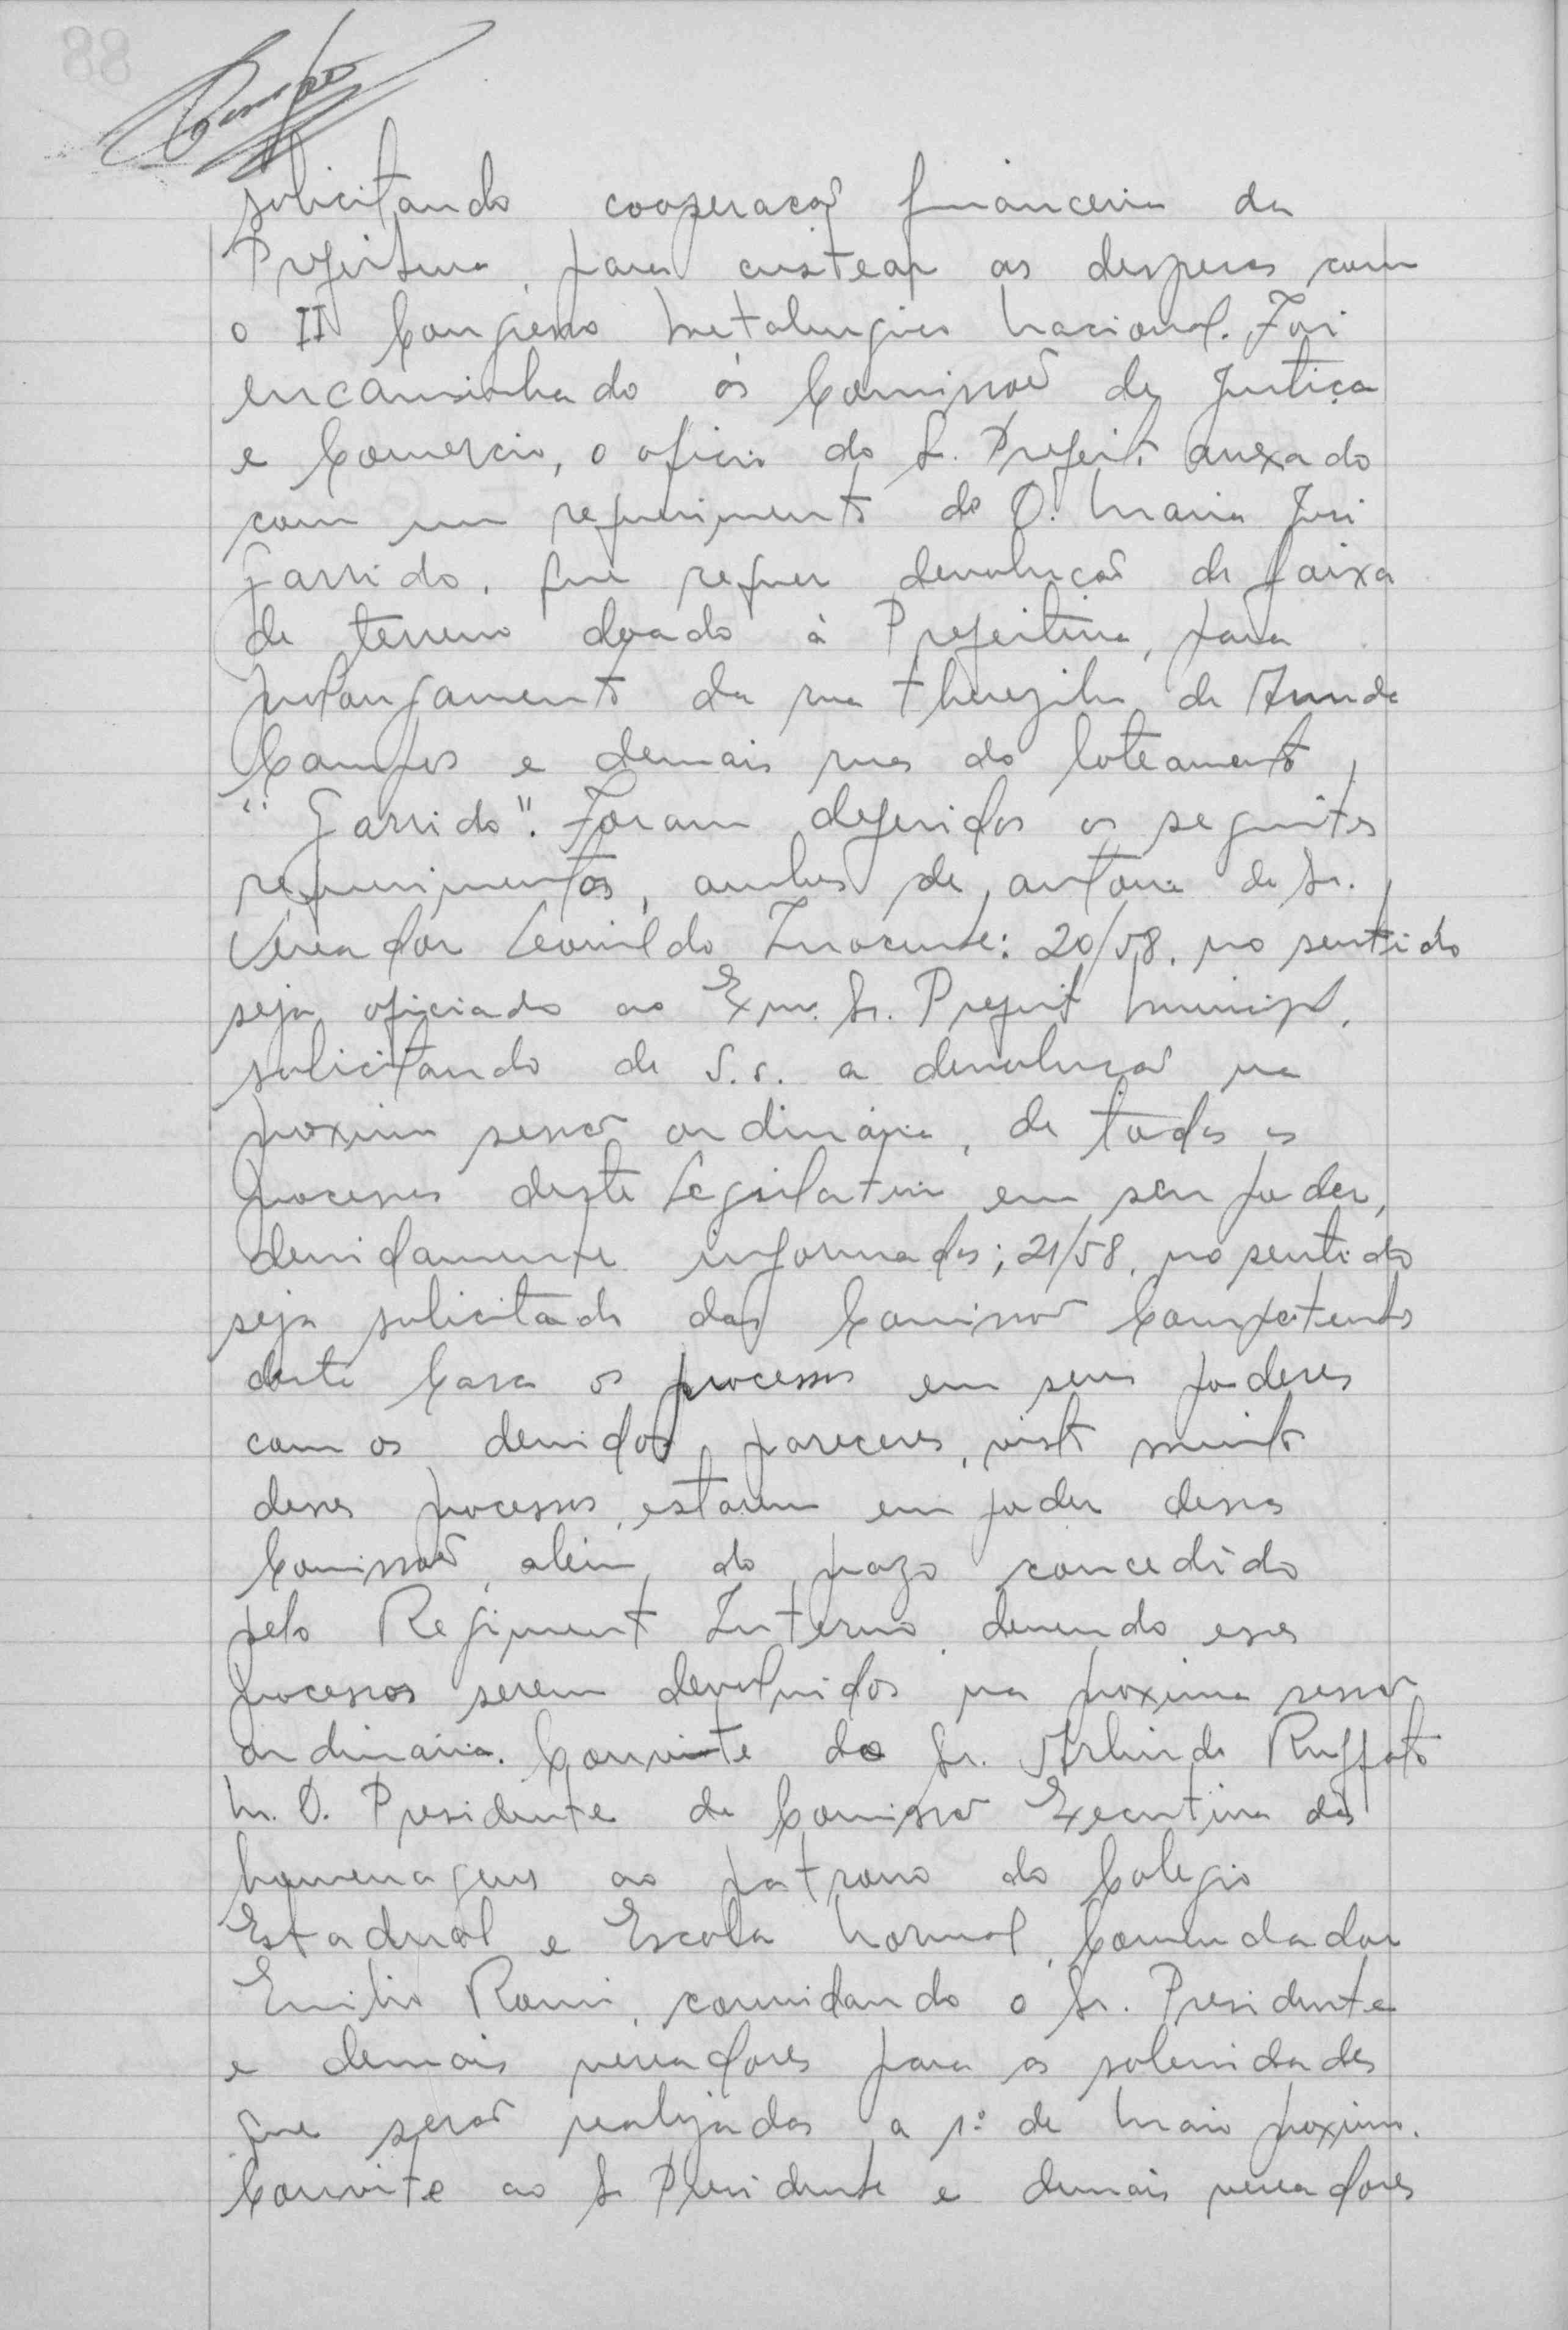 88
solicitando cooperação financeira da
Prefeitura, para custear as despesas com
o II Congresso Metalurgico Nacional. Foi
encaminhado ás Comissoẽ de Justiça
e Comercio, o oficio do S. Prefeito anexado
com um requerimento de D. Maria
Garrido, que requer devolução de faixa
de terreno doado à Prefeitura, para
prolongamento da rua Therezita de Arruda
Campos e demais ruas do loteamento
"Garrido". Foram deferidos os seguintes
requerimentos, ambos de autoria do Sr.
Vereador Leonildo Inocente: 20/58, no sentido
seja oficiado ao Exmo. Sr. Prefeito Municipal,
solicitando de S.S. a devolução na
proxima sessão ordinária, de todos os
processos deste Legislativo em seu poder,
devidamente informados; 21/58, no sentido
seja solicitado das Comissoẽ Competentes
desta Casa os processos em seus poderes
com os devidos pareceres, visto muito
desses processos, estarem em poder dessas
Comissoẽ, além do prazo concedido
pelo Regimento Interno, devendo esses
processos serem devolvidos na proxima sessão
ordinária. Convite do Sr. Arlindo Ruffato
M.D. Presidente da Comissão Executiva das
homenagens ao patrono do Colegio
Estadual e Escola Normal, Comendador
Emilio Romi, convidando o Sr. Presidente
e demais vereadores para as solenidades
que serão realizadas a 1º de Maio proximo.
Convite ao Sr Presidente e demais vereadores